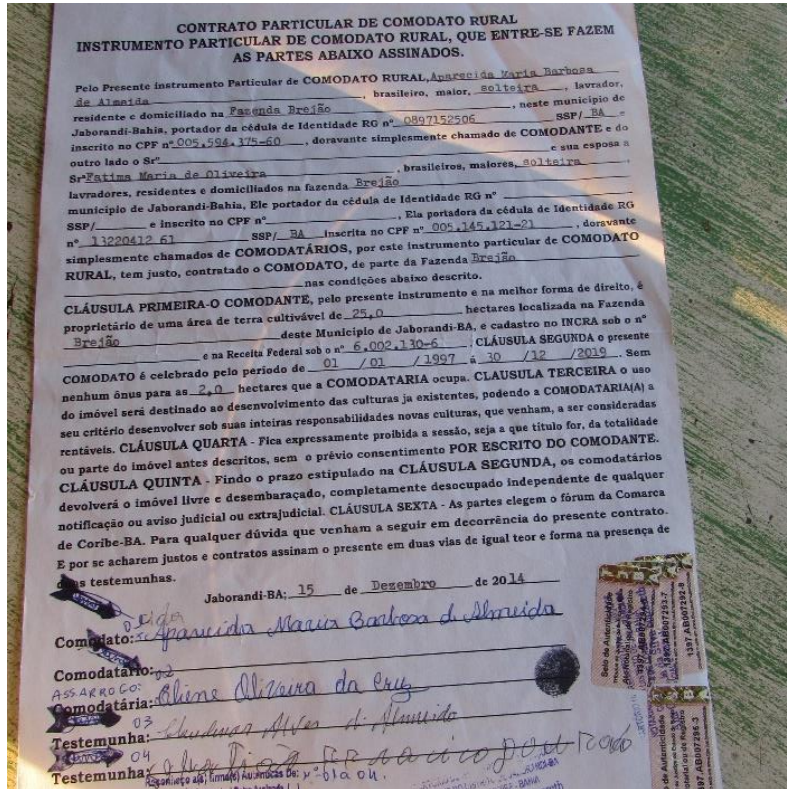 CONTRATO PARTICULAR DE COMODATO RURAL
INSTRUMENTO PARTICULAR DE COMODATO RURAL, QUE ENTRE-SE FAZEM
AS PARTES ABAIXO ASSINADOS.
Pelo Presente instrumento Particular de COMODATO RURAL, Aparecida Maria Barbosa
de Almeida, brasileiro, maior, solteira, lavrador,
residente e domiciliado na Fazenda Brejão, neste município de
Jaborandi-Bahia, portador da cédula de Identidade RG nº 0897152506 SSP/ BA e
inscrito no CPF nº 005.594.375-60, doravante simplesmente chamado de COMODANTE e do
outro lado o Srº e sua esposa a
Srª Fatima Maria de Oliveira, brasileiros, maiores, solteira,
lavradores, residentes e domiciliados na fazenda Brejão
municipio de Jaborandi-Bahia, Ele portador da cédula de Identidade RG nº
SSP/ e inscrito no CPF nº , Ela portadora da cédula de Identidade RG
nº 13220412 61 SSP/ BA inscrita no CPF nº 005.145.121-21, doravante
simplesmente chamados de COMODATÁRIOS, por este instrumento particular de COMODATO
RURAL, tem justo, contratado o COMODATO, de parte da Fazenda Brejão
nas condições abaixo descrito.
CLÁUSULA PRIMEIRA-O COMODANTE, pelo presente instrumento e na melhor forma de direito, é
proprietário de uma área de terra cultivável de 25,0 hectares localizada na Fazenda
Brejão deste Municipio de Jaborandi-BA, e cadastro no INCRA sob o nº
e na Receita Federal sob o nº 6.002.130-6 CLÁUSULA SEGUNDA o presente
COMODATO é celebrado pelo período de 01 /01 /1997 á 30 /12 /2019 . Sem
nenhum ônus para as 2,0 hectares que a COMODATARIA ocupa. CLAUSULA TERCEIRA o uso
do imóvel será destinado ao desenvolvimento das culturas ja existentes, podendo a COMODATARIA(A) a
seu critério desenvolver sob suas inteiras responsabilidades novas culturas, que venham, a ser consideradas
rentáveis. CLÁUSULA QUARTA - Fica expressamente proibida a sessão, seja a que titulo for, da totalidade
ou parte do imóvel antes descritos, sem o prévio consentimento POR ESCRITO DO COMODANTE.
CLÁUSULA QUINTA - Findo o prazo estipulado na CLÁUSULA SEGUNDA, os comodatários
devolverá o imóvel livre e desembaraçado, completamente desocupado independente de qualquer
notificação ou aviso judicial ou extrajudicial. CLÁUSULA SEXTA - As partes elegem o fórum da Comarca
de Coribe-BA. Para qualquer dúvida que venham a seguir em decorrência do presente contrato.
E por se acharem justos e contratos assinam o presente em duas vias de igual teor e forma na presença de
testemunhas.
Jaborandi-BA; 15 de Dezembro de 2014
Comodato: Aparecida Maria Barbosa d Almeida
Comodatário: 02
ASS. A ROGO:
Comodatária: Eliene Oliveira da Cruz
03
Testemunha: Alves d Almeida
04
Testemunha:
Reconheço a(s) firma(s)
1397.AB007293-7
1397.AB007292-9
1397.AB007295-3